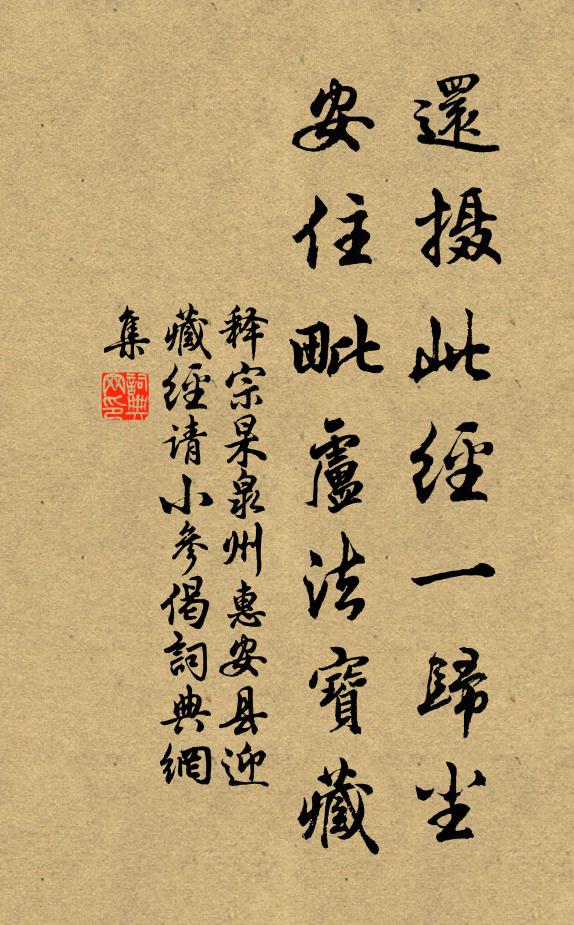 還摄此經一歸尘
安住毗盧法寶藏
释宗杲泉州惠安县迎
藏經请小參偈詞典網
集
詞典网印